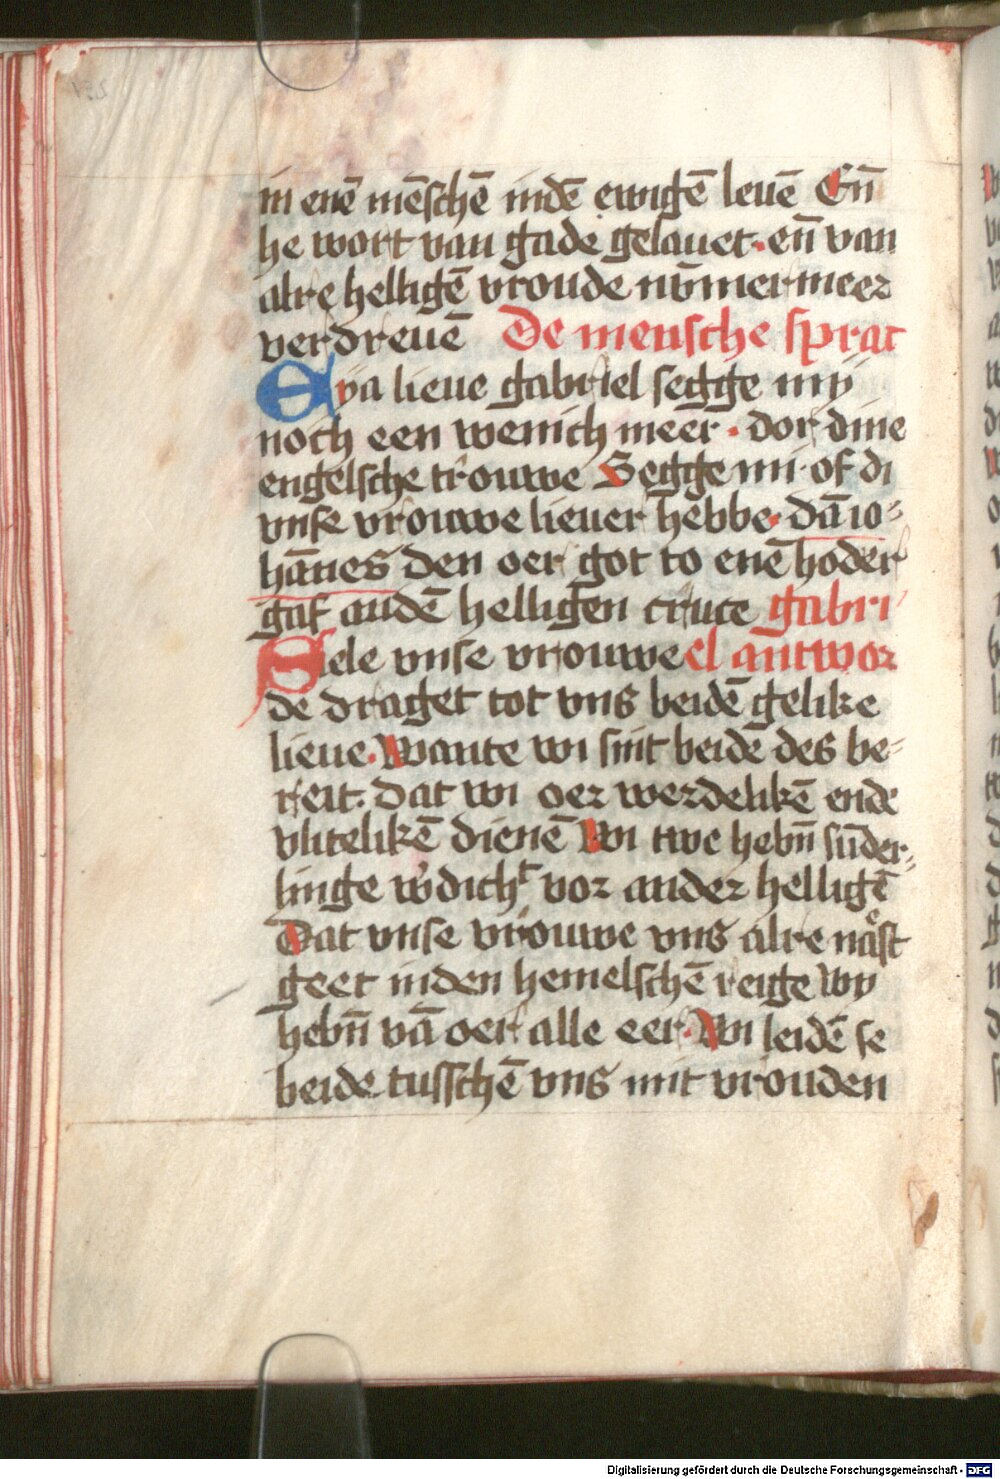 in enē mēschē indē ewigē leuē Eñ
he wort van gade gelauet · eñ van
alre helligē vroude nūmermeer
verdreuē De mensche sprac
Eya lieue gabriel segge my
noch een wenich meer · dor dine
engelsche trouwe Segge mi · of di
vnse vrouwe lieuer hebbe · dā io⸗
hānes den oer got to enē hoder
gaf andē helligen trute gabri
Siele vnse vrouwe el antwor
de draget tot vns beidē gelike
lieue · Wante wi sint beide des be⸗
reit · Dat wi oer werdelikē ende
vlitelikē dienē Wi twe hebñ sūder⸗
linge
vor ander helligē
Dat vnse vrouwe vns alre naͤst
geet inden hemelschē reige Wy
hebñ vā oer alle eer · Wi leidē se
beide tusschē vns mit vrouden
Digitalisierung gefördert durch die Deutsche Forschungsgemeinschaft - DFG